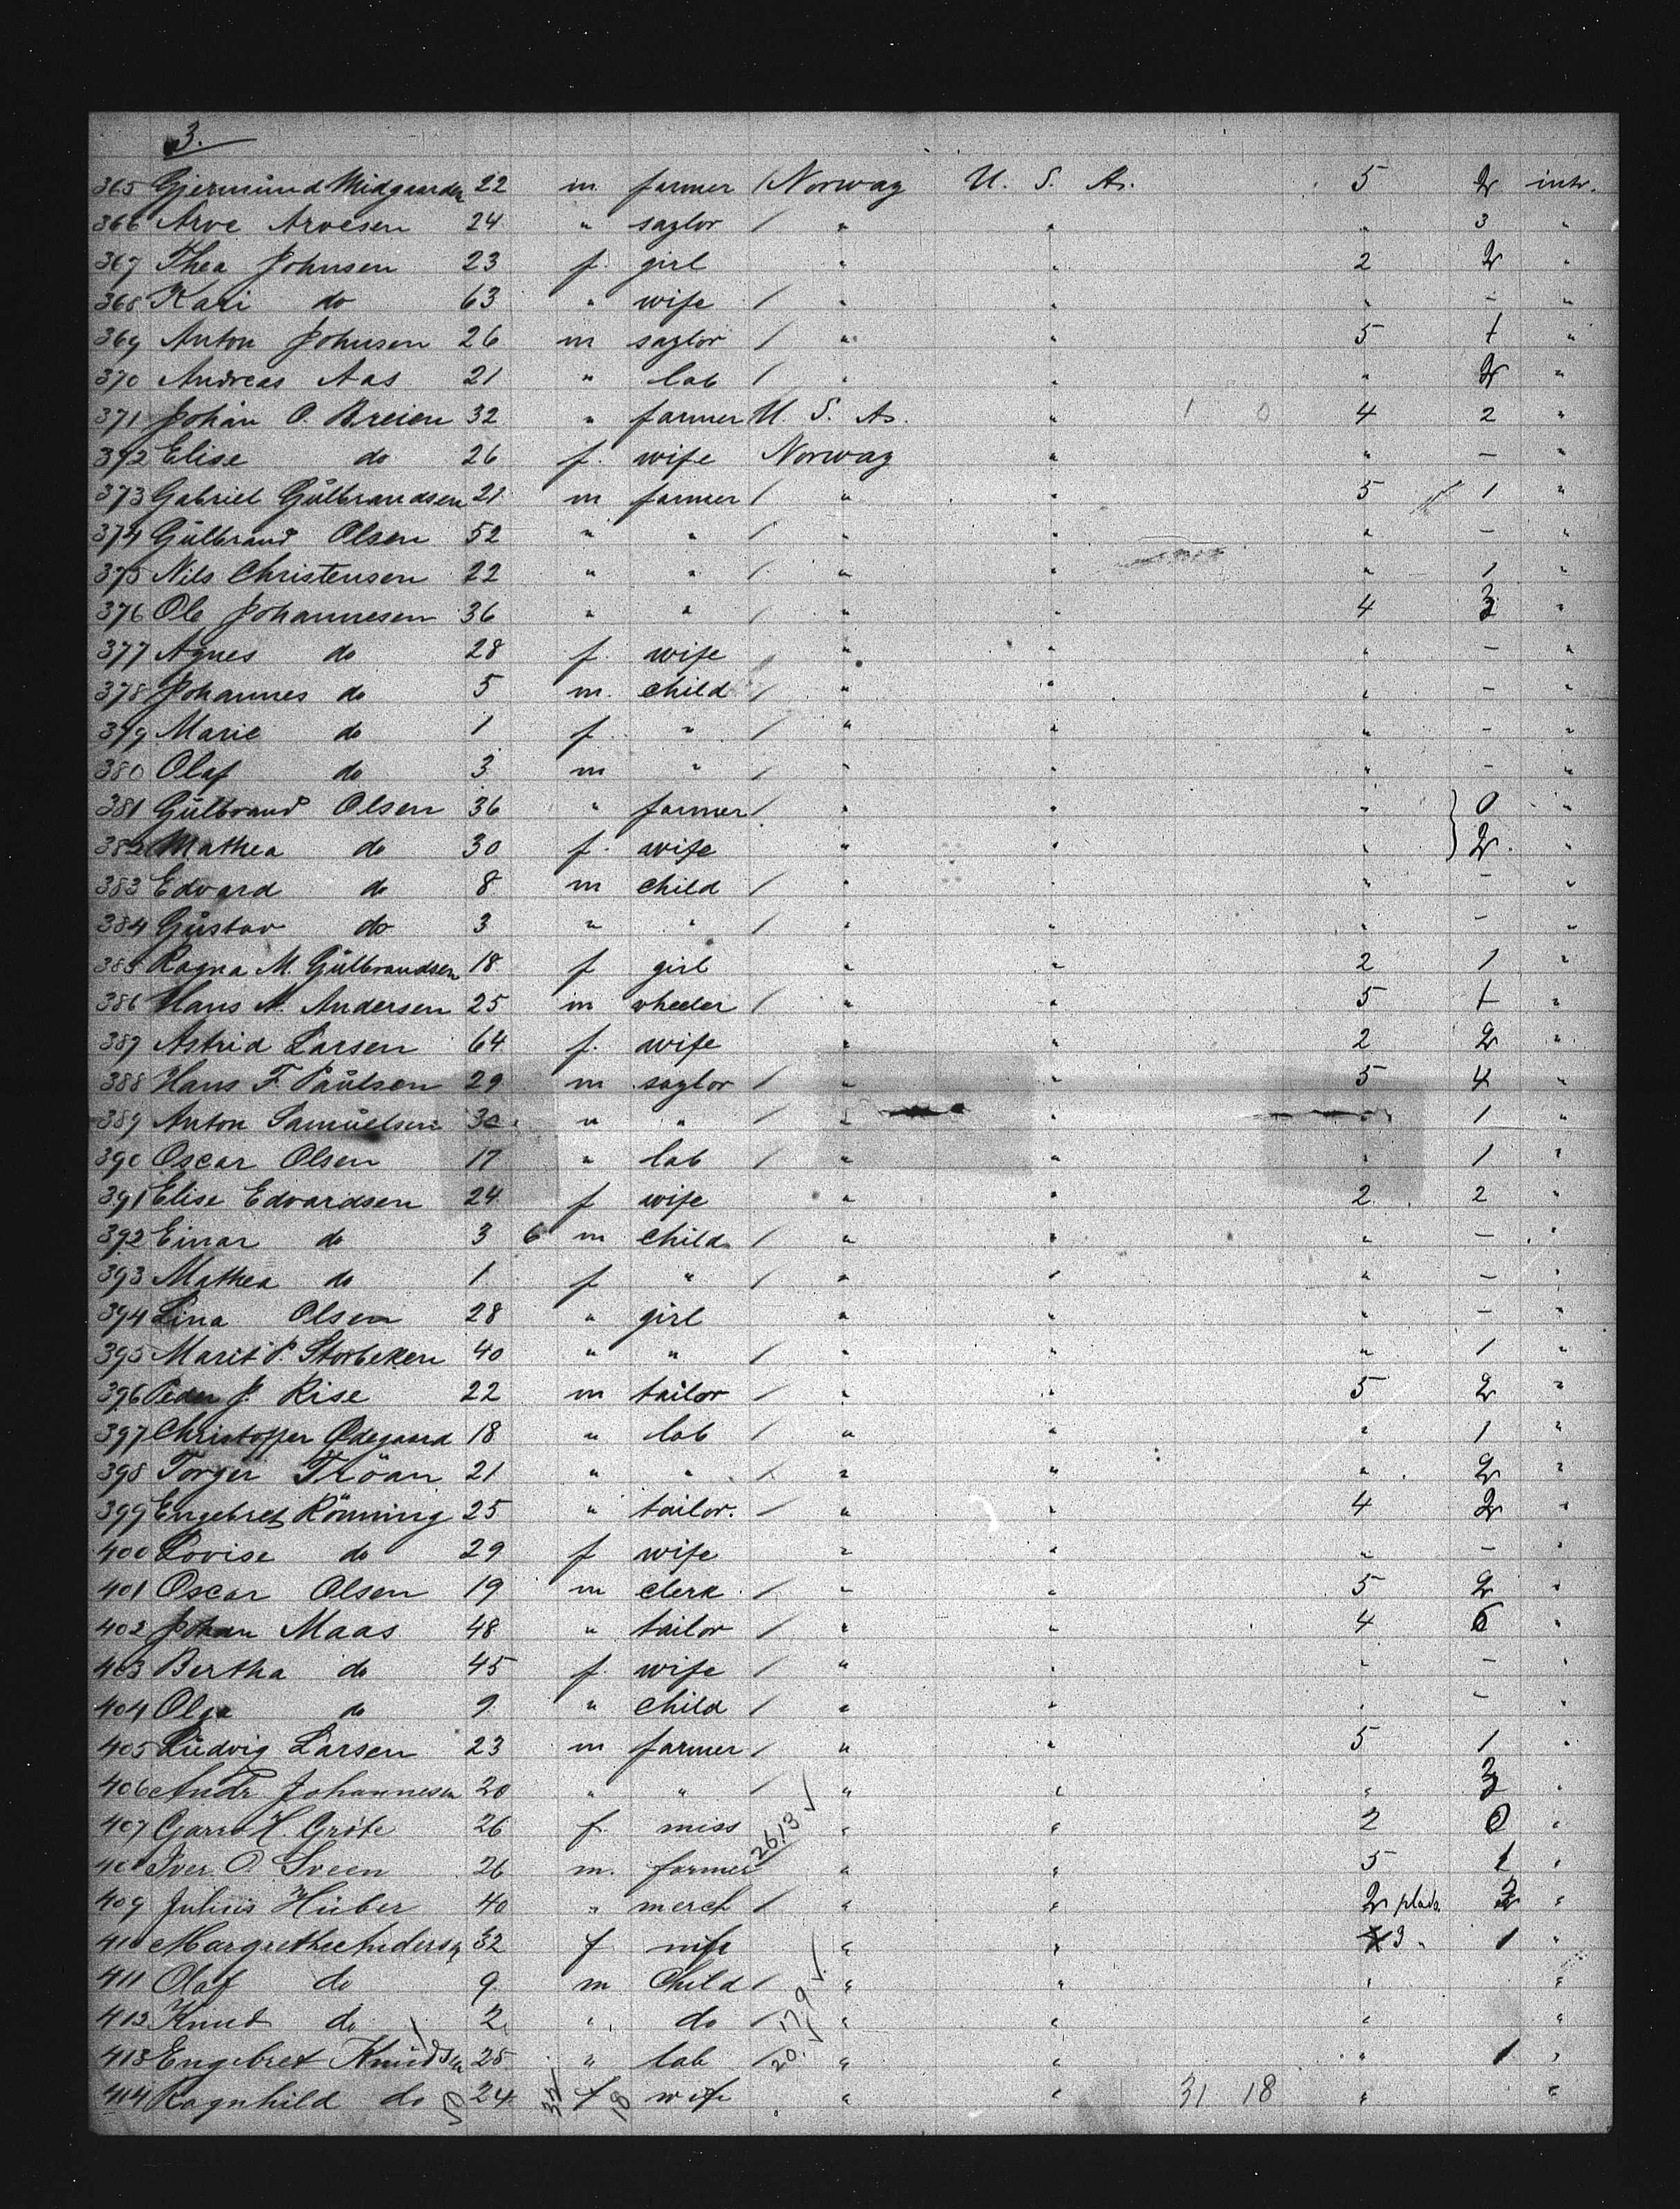 3.
365 Gjermund Midgaarden 22 m farmer / Norway U. S. As. 5 2 intr.
366 Arve Arvesen 24 " saylor / " " " 3 "
367 Thea Johnsen 23 f. girl " " 2 2 "
368 Kari do 63 " wife / " " " - "
369 Anton Johnsen 26 m saylor / " " 5 1 "
370 Andreas Aas 21 " lab / " " " 2 "
371 Johan O. Breien 32 " farmer U. S. As. " 1 0 4 2 "
372 Elise do 26 f. wife Norway " " - "
373 Gabriel Gulbrandsen 21 m farmer / " " 5 1 "
374 Gulbrand Olsen 52 " " / " " " - "
375 Nils Christensen 22 " " / " " " 1 "
376 Ole Johannesen 36 " " / " " 4 3 "
377 Agnes do 28 f. wife / " " " - "
378 Johannes do 5 m. child / " " " - "
379 Marie do 1 f. " / " " " - "
380 Olaf do 3 m " / " " " - "
381 Gulbrand Olsen 36 " farmer / " " " 0 "
382 Mathea do 30 f. wife " " " 2 "
383 Edvard do 8 m child / " " " - "
384 Gustav do 3 " " / " " " - "
385 Ragna M. Gulbrandsen 18 f girl " " 2 1 "
386 Hans A. Andersen 25 m wheeler / " " 5 1 "
387 Astrid Larsen 64 f. wife " " 2 2 "
388 Hans F. Paulsen 29 m saylor / " " 5 4 "
389 Anton Samuelsen 30 " " / " " " 1 "
390 Oscar Olsen 17 " lab / " " " 1 "
391 Elise Edvardsen 24 f wife " " 2 2 "
392 Einar do 3 6 m child / " " " - "
393 Mathea do 1 f " / " " " - "
394 Lina Olsen 28 " girl " " " - "
395 Marit P. Storbeken 40 " " / " " " 1 "
396 Peder J. Rise 22 m tailor / " " 5 2 "
397 Christoffer Ødegaard 18 " lab / " " " 1 "
398 Torger Tröan 21 " " / " " " 2 "
399 Engebret Rönning 25 " tailor. / " " 4 2 "
400 Lovise do 29 f wife " " " - "
401 Oscar Olsen 19 m clerk / " " 5 2 "
402 Johan Maas 48 " tailor / " " 4 6 "
403 Bertha do 45 f. wife / " " " - "
404 Olga do 9 " child / " " " - "
405 Ludvig Larsen 23 m farmer / " " 5 1 "
406 Andr. Johannesen 20 " " / " " " 3 "
407 H. Gröte 26 f. miss " " 2 0 "
408 Iver O. Sveen 26 m. farmer 26/3 " " 5 1 "
409 Julius Huber 40 " merch / " " 2 plads. "
410 Margrethe Andersen 32 f wife " " 3 " 1 "
411 Olaf do 9. m Child / " " " "
412 Knut do 2 " do / 17 9 " " " "
413 Engebret Knudsen 25 " lab / 20. " " " 1 "
414 Ragnhild do 50 24 32 f 18 wife " " 31 18 " "